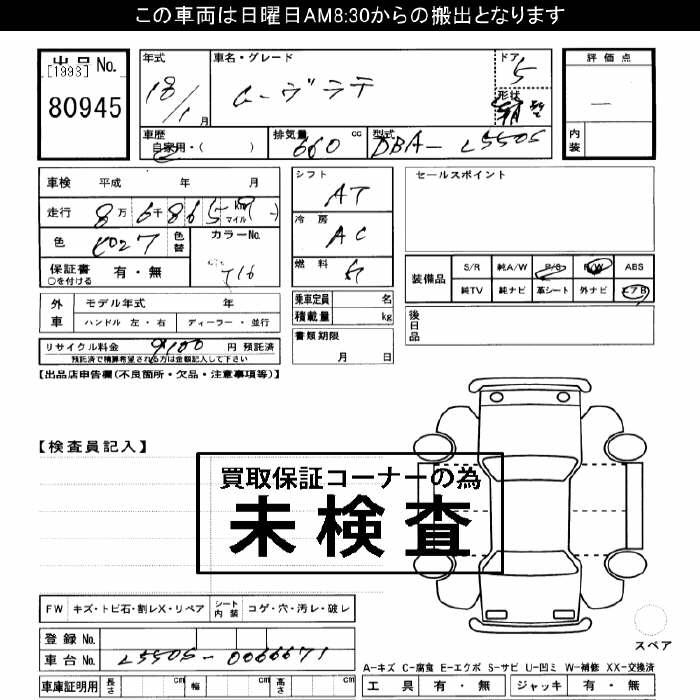 この車両は日曜日AM8:30からの搬出となります
出品No.
[1993]
80945
年式 車名・グレード ドア 形状
18/1月 ムーヴラテ 5
車歴 排気量 cc 型式
自家用・( ) 660 DBA-L550S
評価点
内装
車検 平成 年 月
走行 8万6千865 km マイル
色 色替 カラーNo.
T16
保証書 有・無
○を付ける
外車 モデル年式 年
ハンドル 左・右 ディーラー・並行
リサイクル料金 9100 円 預託済
預託済で精算希望される方は金額記入して下さい
シフト AT
冷房 AC
燃料 ガ
乗車定員 名
積載量 kg
書類期限
月 日
セールスポイント
装備品 S/R 純A/W P/S P/W ABS
純TV 純ナビ 革シート 外ナビ エアB
後日品
【出品店申告欄(不良箇所・欠品・注意事項等)】
【検査員記入】
買取保証コーナーの為
未検査
FW キズ・トビ石・割レX・リペア シート内装 コゲ・穴・汚レ・破レ
登録No.
車台No. L550S-0066671
車庫証明用 長さ cm 幅 cm 高さ cm
スペア
A-キズ C-腐食 E-エクボ S-サビ U-凹ミ W-補修 XX-交換済
工具 有・無 ジャッキ 有・無